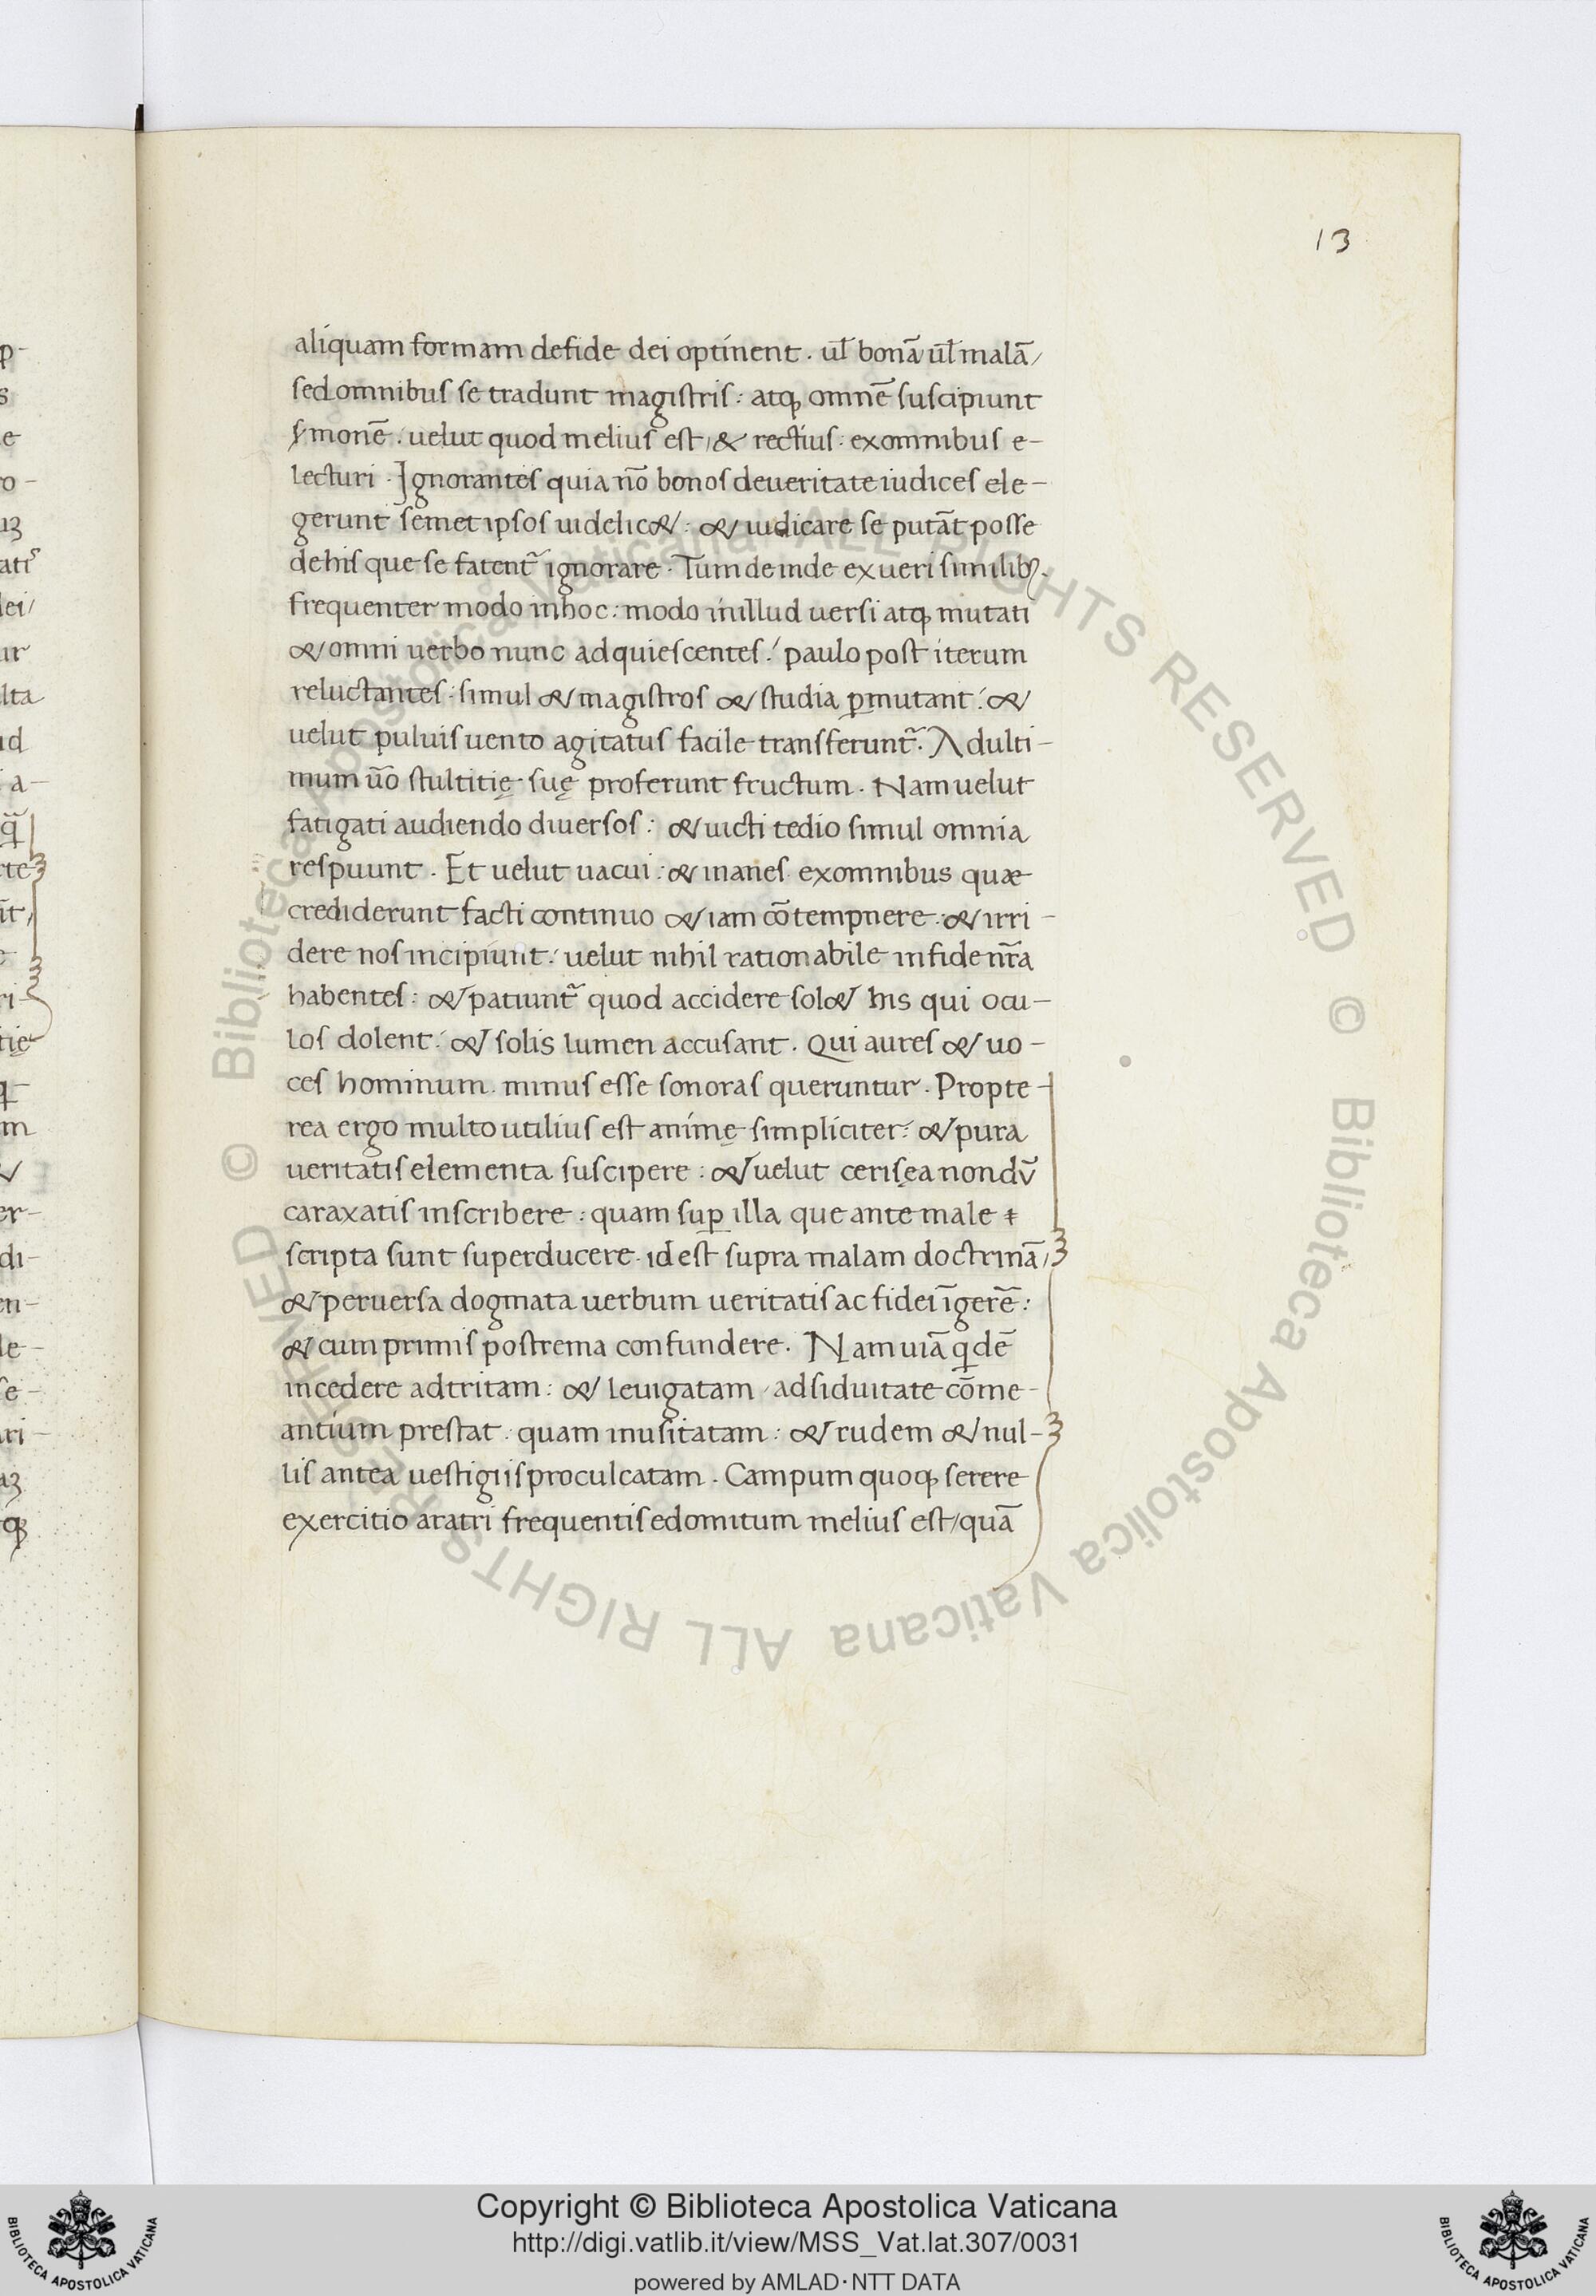 13
aliquam formam defide dei optinent . ul̄ bonā ul̄ malā/
sed omnibus se tradunt magistris : atq; omnē suscipiunt
smonē . uelut quod melius est / & rectius : exomnibus e-
lecturi . Ignorantes quia nō bonos deueritate iudices ele-
gerunt semet ipsos uidelic& : & iudicare se putāt posse
dehis que se fatent᷑ ignorare . Tum de inde ex ueri similib;.
frequenter modo inhoc : modo inillud uersi atq; mutati
& omni uerbo nunc adquiescentes : paulo post iterum
reluctantes : simul & magistros & studia ꝑmutant : &
uelut puluis uento agitatus facile transferunt᷑ . Adulti-
mum ūo stultitię suę proferunt fructum . Nam uelut
fatigati audiendo diuersos : & uicti tedio simul omnia
respuunt . Et uelut uacui : & inanes exomnibus quæ
crediderunt facti continuo & iam cōtempnere : & irri-
dere nos incipiunt : uelut nihil rationabile infide nr̄a
habentes : & patiunt᷑ quod accidere sol& his qui ocu-
los dolent : & solis lumen accusant . Qui aures & uo-
ces hominum . minus esse sonoras queruntur . Propte-
rea ergo multo utilius est animę simpliciter : & pura
ueritatis elementa suscipere : & uelut ceris ea nondū
caraxatis inscribere : quam suꝑ illa que ante male
scripta sunt superducere . id est supra malam doctrinā /
& peruersa dogmata uerbum ueritatis ac fidei īgerē :
& cum primis postrema confundere . Nam uiā q̇dē
incedere adtritam : & leuigatam / adsiduitate cōme-
antium prestat . quam inusitatam : & rudem & nul-
lis antea uestigiis proculcatam . Campum quoq; serere
exercitio aratri frequentis edomitum melius est / quā
Copyright © Biblioteca Apostolica Vaticana
http://digi.vatlib.it/view/MSS_Vat.lat.307/0031
powered by AMLAD·NTT DATA
BIBLIOTECA APOSTOLICA VATICANA
BIBLIOTECA APOSTOLICA VATICANA
© Biblioteca Apostolica Vaticana ALL RIGHTS RESERVED © Biblioteca Apostolica Vaticana ALL RIGHTS RESERVED